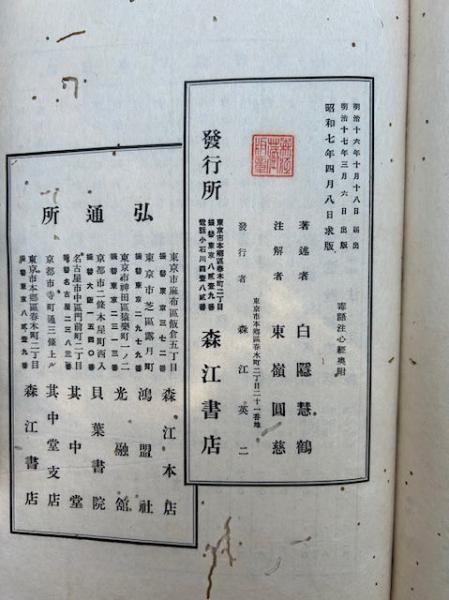 毒語注心經奥附
明治十六年十月十八日 屆出
明治十七年三月六日 出版
昭和七年四月八日求版
著述者 白隱慧鶴
注解者 東嶺圓慈
東京市本鄕區春木町二丁目二十一番地
發行者 森江英二
發行所
東京市本鄕區春木町二丁目
振替東京八貳壹九番
電話小石川四壹八貳番
森江書店
弘通所
東京市麻布區飯倉五丁目
振替東京三七二番
森江本店
東京市芝區露月町
振替東京二九七九番
鴻盟社
東京市神田區猿樂町一ノ二
振替東京三一三番
光融館
京都市二條木屋町西入
振替大阪一五四〇番
貝葉書院
名古屋市中區門前町二丁目
電話名古屋二三八三番
其中堂
京都市寺町通三條上ル
其中堂支店
東京市本鄕區春木町二丁目
振替東京八貳壹九番
森江書店